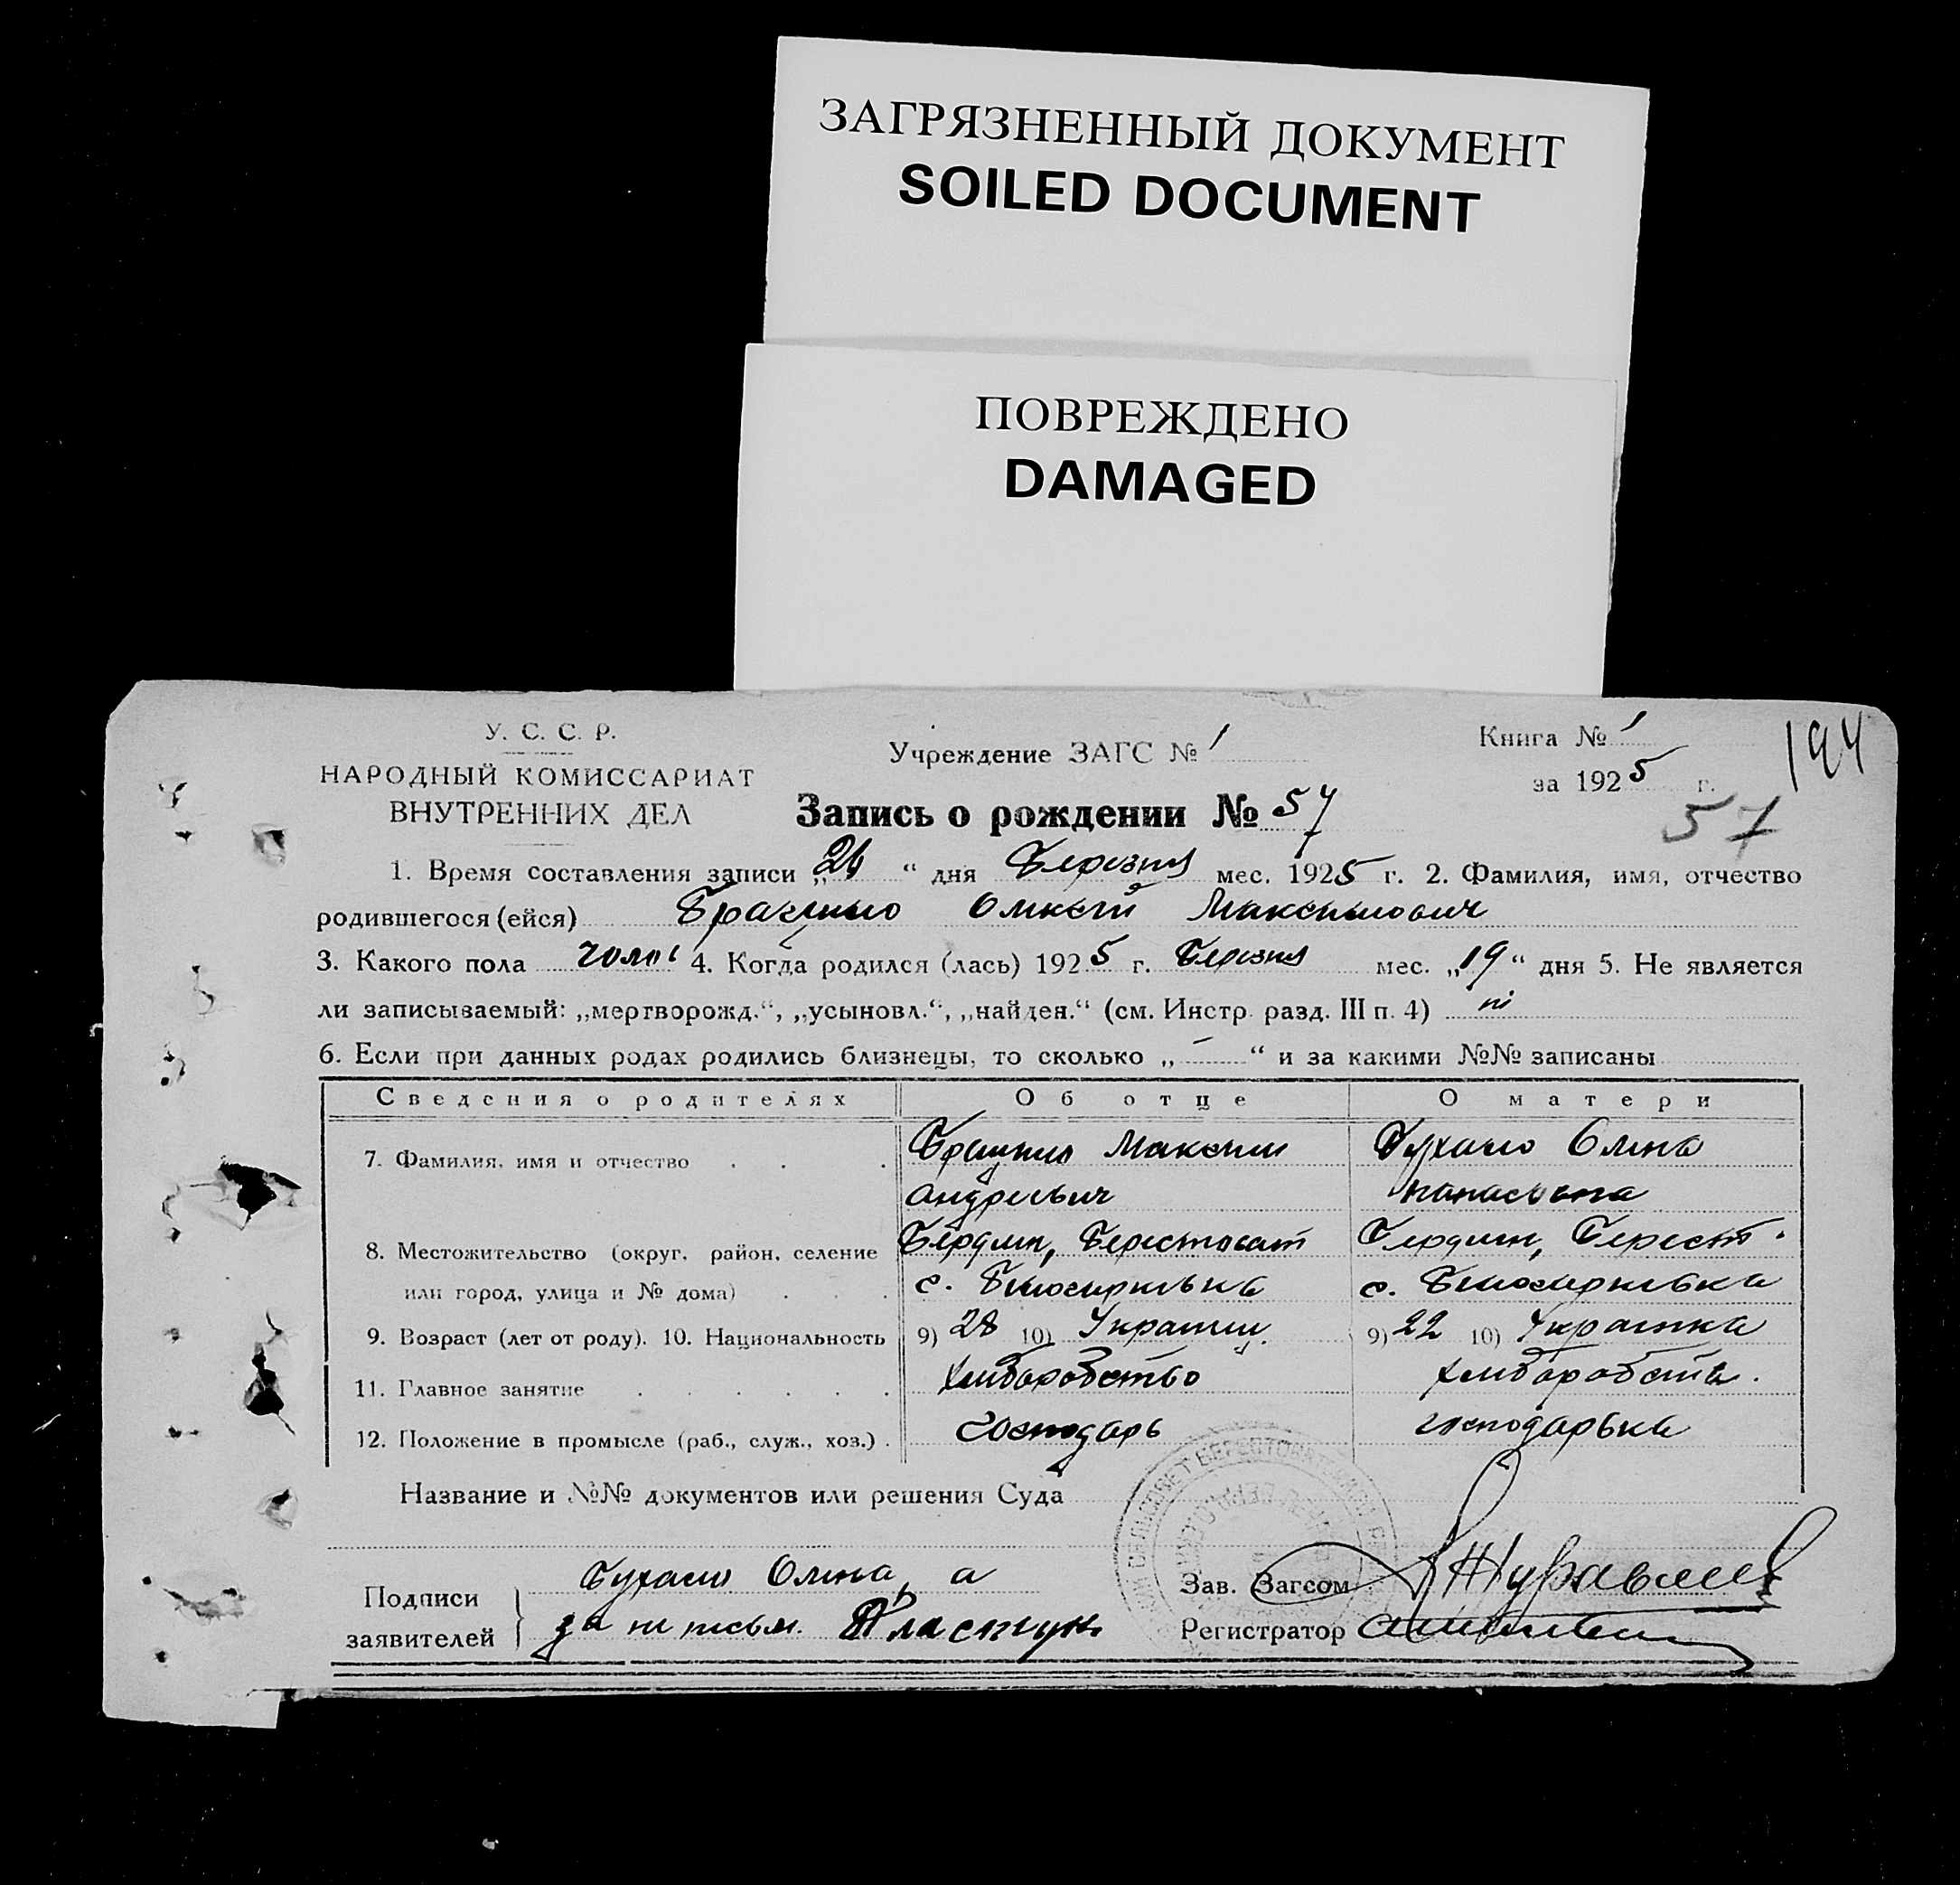 ЗАГРЯЗНЕННЫЙ ДОКУМЕНТ
SOILED DOCUMENT
ПОВРЕЖДЕНО
DAMAGED
У. С. С. Р.
НАРОДНЫЙ КОМИССАРИАТ
ВНУТРЕННИХ ДЕЛ
Учреждение ЗАГС № 1
Книга № 1
за 1925 г.
194
Запись о рождении № 57
57
1. Время составления записи „26“ дня Березня мес. 1925 г. 2. Фамилия, имя, отчество
родившегося (ейся) Олексій Максимович
3. Какого пола чолов 4. Когда родился (лась) 1925 г. Березня мес. „19“ дня 5. Не является
ли записываемый: „мертворожд.“, „усыновл.“, „найден.“ (см. Инстр. разд. III п. 4) ні
6. Если при данных родах родились близнецы, то сколько „—“ и за какими №№ записаны
Сведения о родителях Об отце О матери
7. Фамилия, имя и отчество Максим Олена
Андреевич Панасовна
8. Местожительство (округ, район, селение Бердян, Берестоват Бердян, Берест.
или город, улица и № дома) с. с.
9. Возраст (лет от роду). 10. Национальность 9) 28 10) Украинц. 9) 22 10) Украинка
11. Главное занятие Хлиборобство хлиборобств.
12. Положение в промысле (раб., служ., хоз.) господарь господарька
Название и №№ документов или решения Суда
Подписи
заявителей
Олена, а
за не письм. Пластун
Зав. Загсом Журавлев
Регистратор